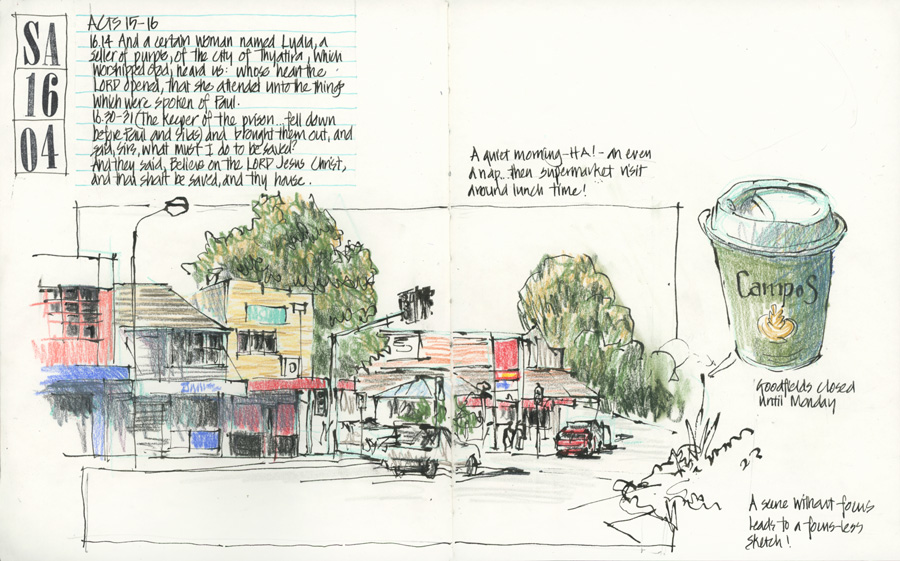 SA
16
04
ACTS 15-16
16.14 And a certain woman named Lydia, a
seller of purple, of the city of Thyatira, which
worshipped God, heard us: whose heart the
LORD opened, that she attended unto the things
which were spoken of Paul.
16.30-31 (The keeper of the prison... fell down
before Paul and Silas) and brought them out, and
said, Sirs, what must I do to be saved?
And they said, Believe on the LORD Jesus Christ,
and thou shalt be saved, and thy house.
A quiet morning-HA!-an even
a nap...then supermarket visit
around lunch time!
Campos
Goodfields closed
until Monday
A scene without focus
leads to a focus-less
sketch!